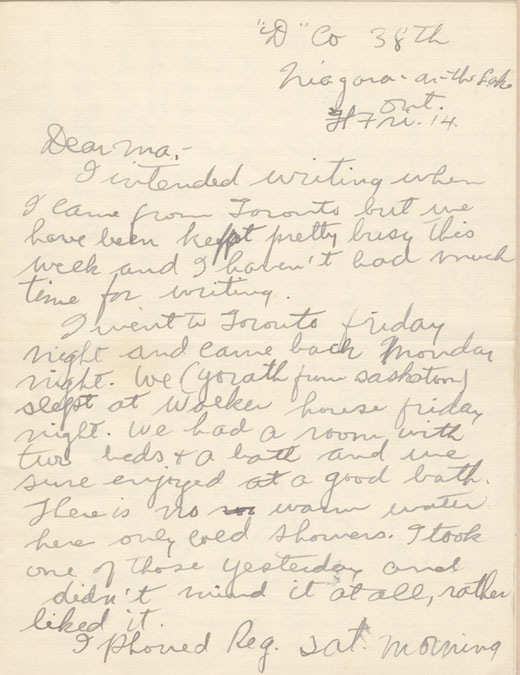 "D" Co 38th
Niagara-on-the-Lake
Ont.
Fri. 14.
Dear Ma,-
I intended writing when
I came from Toronto but we
have been kept pretty busy this
week and I haven't had much
time for writing.
I went to Toronto friday
night and came back Monday
night. We (Yorath from Saskatoon)
slept at Walker house friday
night. We had a room with
two beds & a bath and we
sure enjoyed at a good bath.
There is no warm water
here only cold showers. I took
one of those yesterday and
didn't mind it at all, rather
liked it.
I phoned Reg. Sat. morning